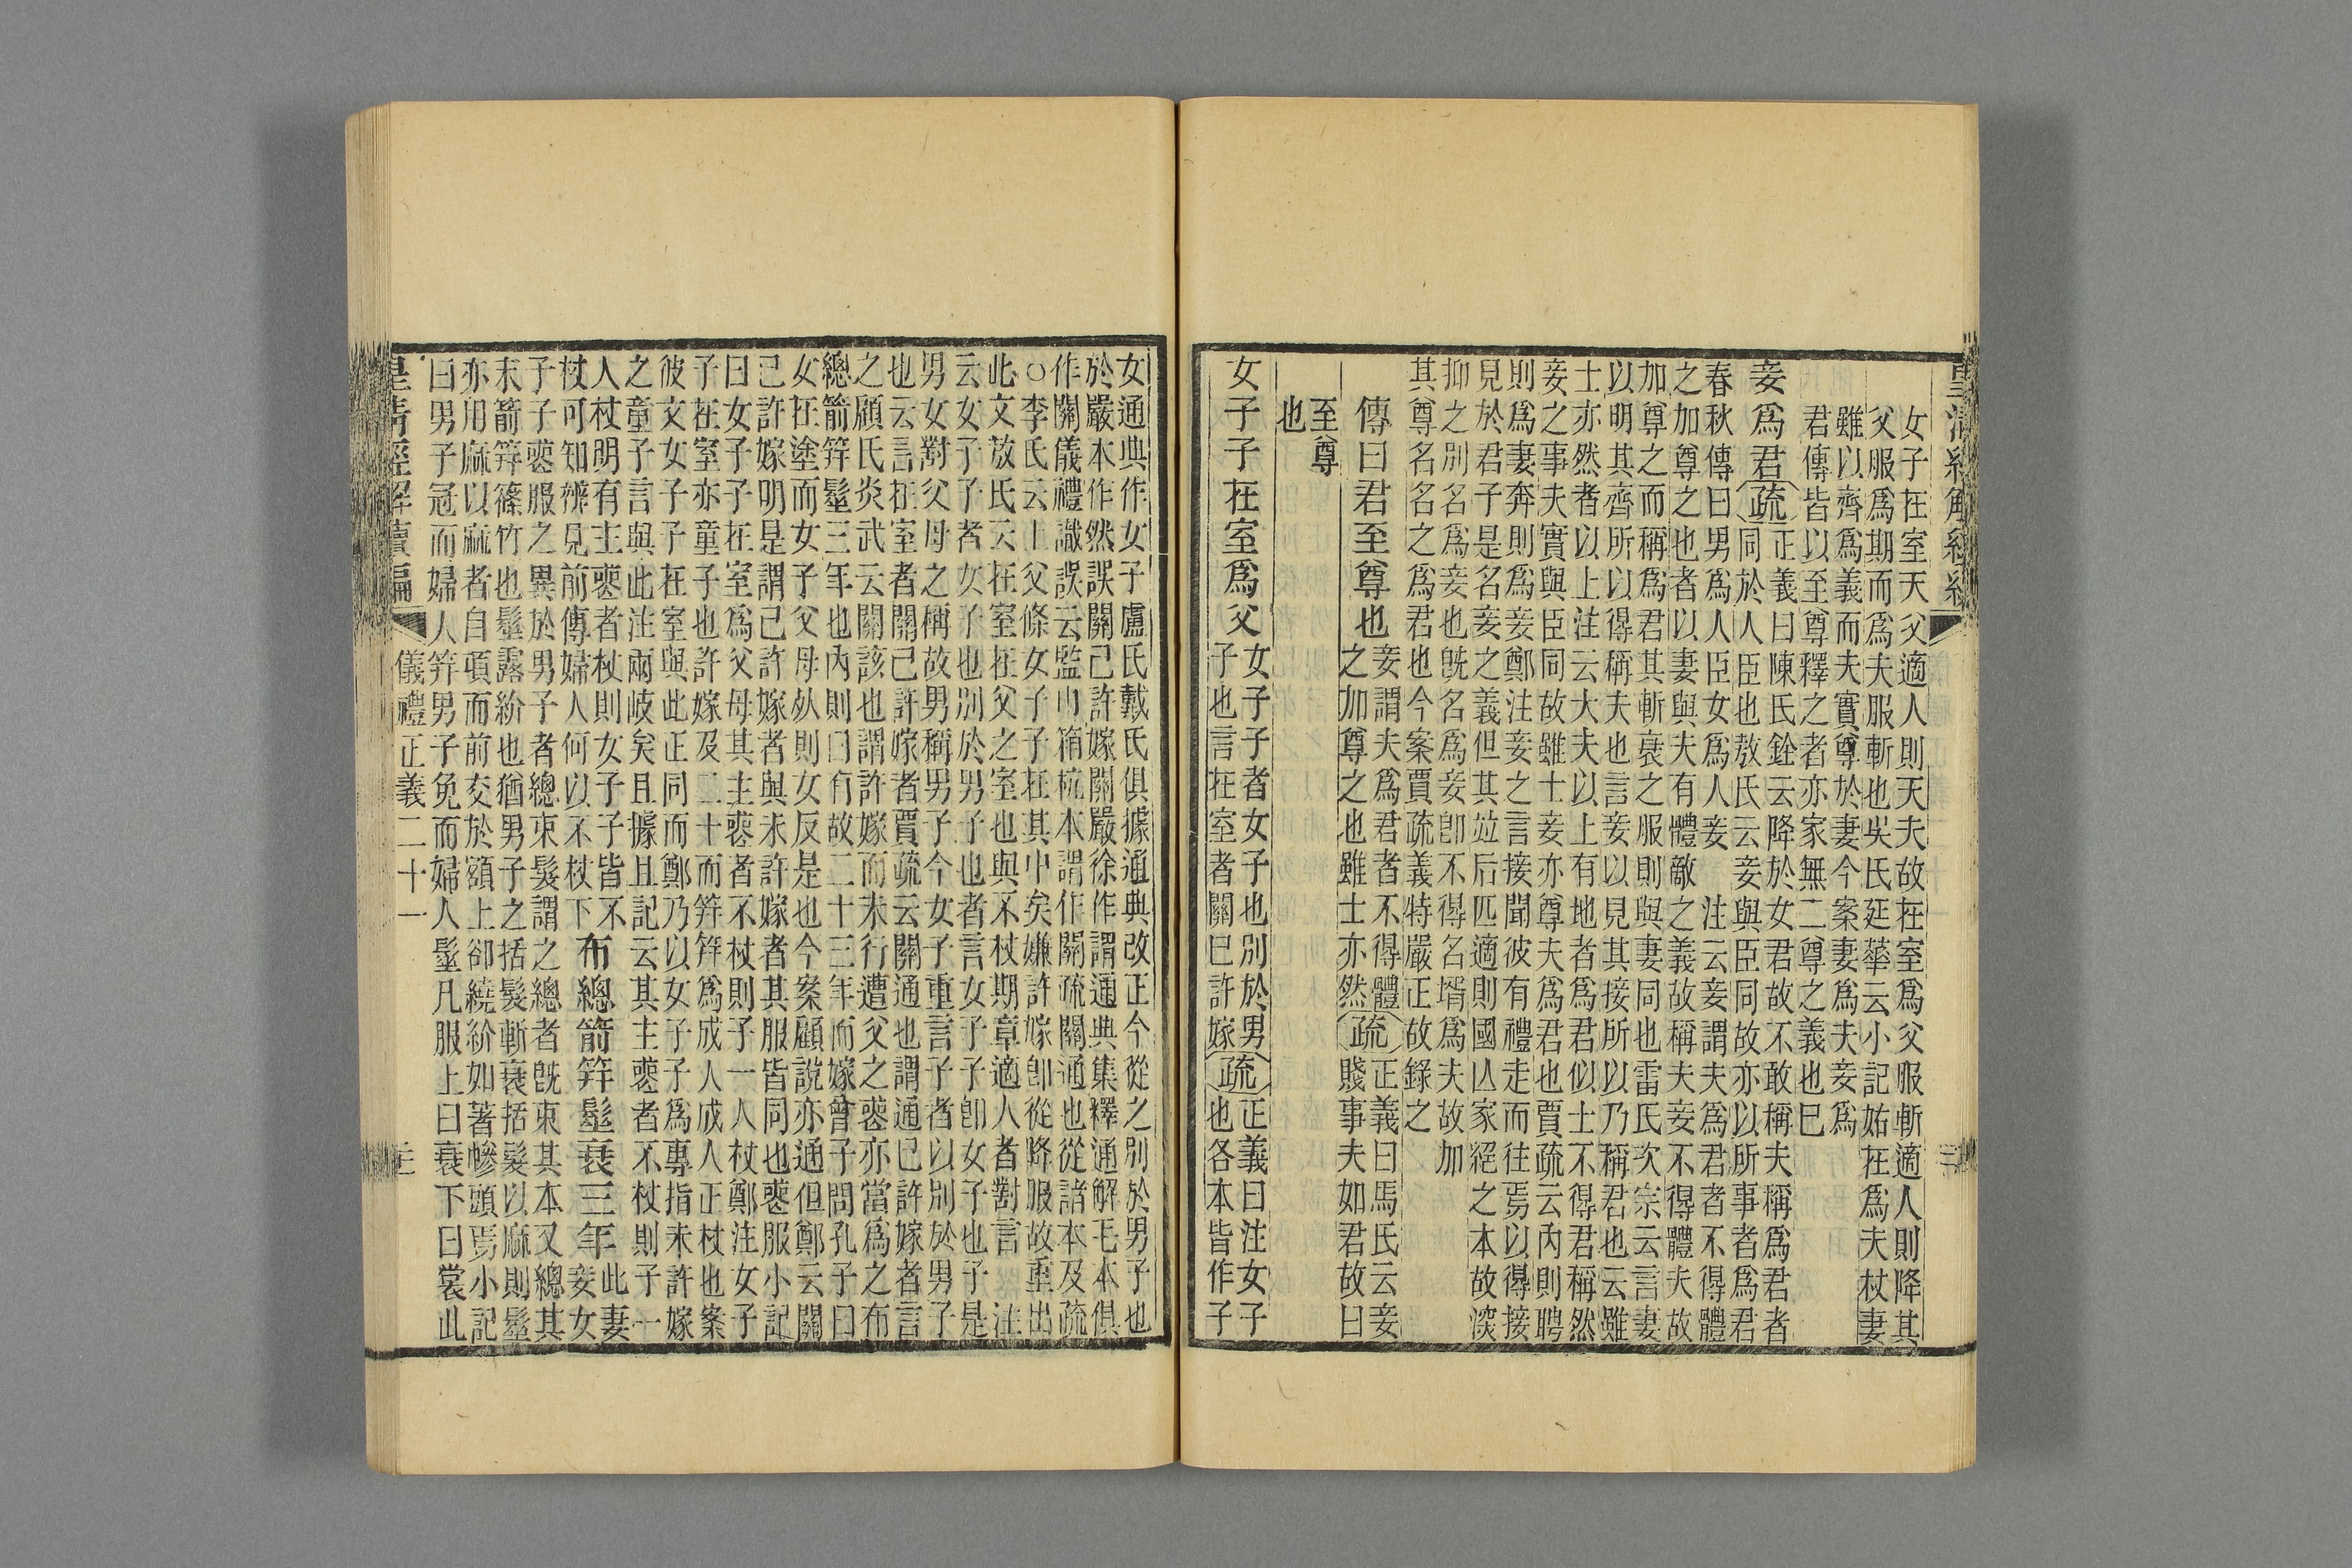 女子在室天父適人則天夫故在室爲父服斬適人則降其
父服爲期而爲夫服斬也吳氏廷華云小記姑在爲夫杖妻
雖以齊爲義而夫實尊於妻今案妻爲夫妾爲
君傳皆以至尊釋之者亦家無二尊之義也已
妾爲君疏正義曰陳氏銓云降於女君故不敢稱夫稱爲君者
同於人臣也敖氏云妾與臣同故亦以所事者爲君
春秋傳曰男爲人臣女爲人妾　注云妾謂夫爲君者不得體
之加尊之也者以妻與夫有體敵之義故稱夫妾不得體夫故
加尊之而稱爲君其斬衰之服則與妻同也雷氏次宗云言妻
以明其齊所以得稱夫也言妾以見其接所以乃稱君也云雖
士亦然者以上注云大夫以上有地者爲君似士不得君稱然
妾之事夫實與臣同故雖士妾亦尊夫爲君也賈疏云內則聘
則爲妻奔則爲妾鄭注妾之言接聞彼有禮走而往焉以得接
見於君子是名妾之義但其竝后匹適則國亾家絕之本故深
抑之別名爲妾也旣名爲妾卽不得名壻爲夫故加
其尊名名之爲君也今案賈疏義特嚴正故錄之
傳曰君至尊也妾謂夫爲君者不得體
之加尊之也雖士亦然疏正義曰馬氏云妾
賤事夫如君故曰
至尊
也
女子子在室爲父女子子者女子也別於男
子也言在室者關已許嫁疏正義曰注女子
也各本皆作子
女通典作女子盧氏戴氏俱據通典改正今從之別於男子也
於嚴本作然誤關已許嫁關嚴徐作謂通典集釋通解毛本俱
作關儀禮識誤云監巾箱杭本謂作關疏關通也從諸本及疏
○李氏云上父條女子子在其中矣嫌許嫁卽從降服故重出
此文敖氏云在室在父之室也與不杖期章適人者對言　注
云女子子者女子也別於男子也者言女子子卽女子也子是
男女對父母之稱故男稱男子今女子重言子者以別於男子
也云言在室者關已許嫁者賈疏云關通也謂通已許嫁者言
之顧氏炎武云關該也謂許嫁而未行遭父之喪亦當爲之布
總箭筓髽三年也內則曰有故二十三年而嫁曾子問孔子曰
女在塗而女子父母死則女反是也今案顧說亦通但鄭云關
已許嫁明是謂已許嫁者與未許嫁者其服皆同也喪服小記
曰女子子在室爲父母其主喪者不杖則子一人杖鄭注女子
子在室亦童子也許嫁及二十而筓筓爲成人成人正杖也案
彼文女子子在室與此正同而鄭乃以女子子爲專指未許嫁
之童子言與此注兩岐矣且據且記云其主喪者不杖則子一
人杖明有主喪者杖則女子子皆不
杖可知辨見前傳婦人何以不杖下布總箭筓髽衰三年此妻
妾女
子子喪服之異於男子者總束髮謂之總者旣束其本又總其
末箭筓篠竹也髽露紒也猶男子之括髮斬衰括髮以麻則髽
亦用麻以麻者自項而前交於額上卻繞紒如著幓頭焉小記
曰男子冠而婦人筓男子免而婦人髽凡服上曰衰下曰裳此
皇清經解續編　儀禮正義二十一